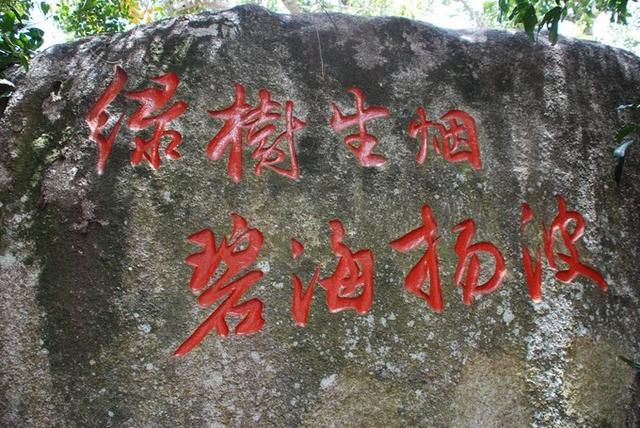 绿樹生烟
碧海扬波